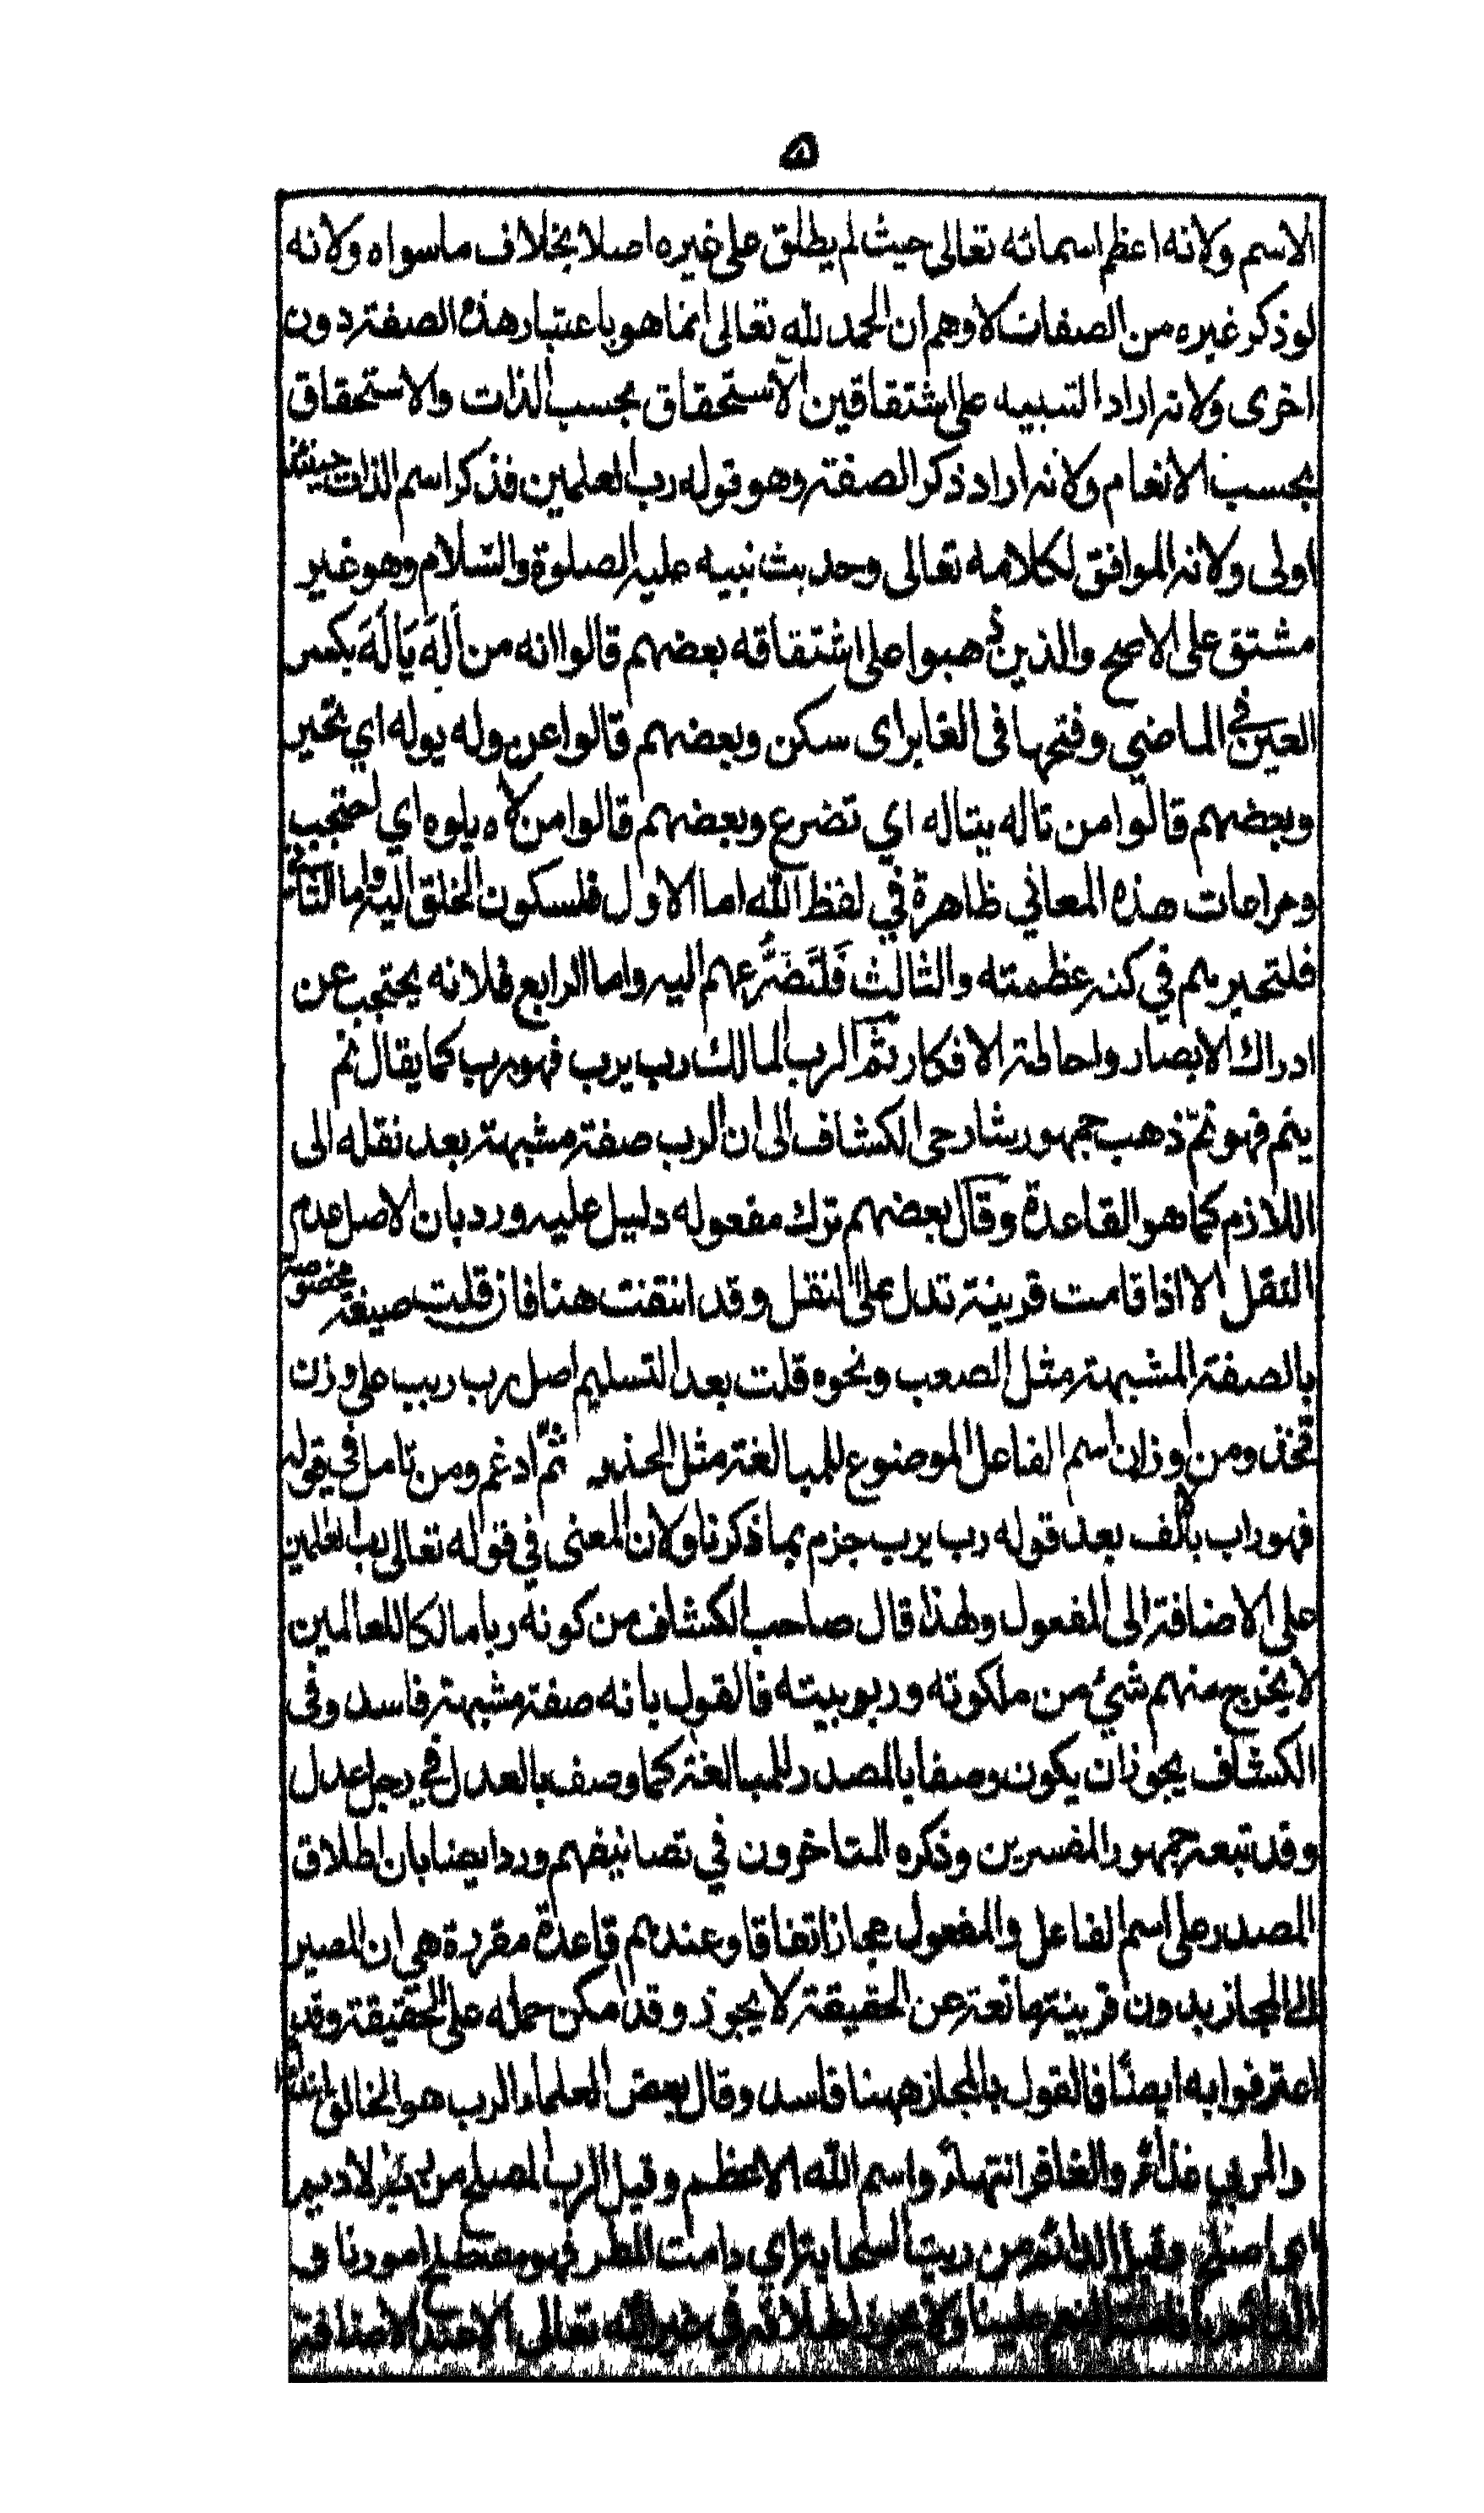 ۵
الاسم ولانه اعظم اسمائه تعالى حيث لم يطلق على غيره اصلا بخلاف ماسواه ولانه
لو ذكر غيره من الصفات لاوهم ان الحمد لله تعالى انما هو باعتبار هذه الصفة دون
اخرى ولانه اراد التنبيه على اشتقاقين الاستحقاق بحسب الذات والاستحقاق
بحسب الانعام ولانه اراد ذكر الصفة وهو قوله رب العلمين فذكر اسم الذات حينئذ
اولى ولانه الموافق لكلامه تعالى وحديث نبيه عليه الصلوة والسلام وهو غير
مشتق على الاصح والذين ذهبوا على اشتقاقه بعضهم قالوا انه من أَلَهَ يَألَهُ بكسر
العين في الماضي وفتحها فى الغابر اى سكن وبعضهم قالوا عن وله يوله اي تحير
وبعضهم قالوا من تاله يتاله اي تضرع وبعضهم قالوا من لاه يلوه اي احتجب
ومراعات هذه المعاني ظاهرة في لفظ الله اما الاول فلسكون الخلق اليه واما الثاني
فلتحيرهم في كنه عظمته والثالث فَلتَضَرُّعهم اليه واما الرابع فلانه يحتجب عن
ادراك الابصار واحاطة الافكار ثم الرب المالك رب يرب فهو رب كما يقال نم
ينم فهو نمّ ذهب جمهور شارحى الكشاف الى ان الرب صفة مشبهة بعد نقله الى
اللازم كما هو القاعدة وقال بعضهم ترك مفعوله دليل عليه ورد بان الاصل عدم
النقل الا اذا قامت قرينة تدل على النقل وقد انتقت هنا فان قلت صيغة مخصوصة
بالصفة المشبهة مثل الصعب ونحوه قلت بعد التسليم اصل رب ربب على وزن
فخذ ومن اوزان اسم الفاعل الموضوع للمبالغة مثل الحذر ثمّ ادغم ومن تامل في قوله
فهو راب بالف بعد قوله رب يرب جزم بما ذكرنا ولان المعنى في قوله تعالى رب العلمين
على الاضافة الى المفعول ولهذا قال صاحب الكشاف من كونه ربا مالكا للعالمين
لا يخرج منهم شئ من ملكوته وربوبيته فالقول بانه صفة مشبهة فاسد وفى
الكشاف يجوز ان يكون وصفا بالمصدر للمبالغة كما وصف بالعدل في رجل عدل
وقد تبعه جمهور المفسرين وذكره المتاخرون في تصانيفهم ورد ايضا بان اطلاق
المصدر على اسم الفاعل والمفعول مجاز اتفاقا وعندهم قاعدة مقررة هي ان المصير
الى المجاز بدون قرينة مانعة عن الحقيقة لا يجوز وقد امكن حمله على الحقيقة وقد
اعترفوا به ايضًا فالقول بالمجاز ههنا فاسد وقال بعض العلماء الرب هو الخالق ابتداء
والمربي غذاء والغافر انتهاء واسم الله الاعظم وقيل الرب المصلح من رب الاديم
اى اصلح وقيل الدائم من ربت السحابة اي دامت المطر فهو مصطلح امورنا و
علينا ولا يجوز اطلاقه في غير الله تعالى الا عند الاضافة